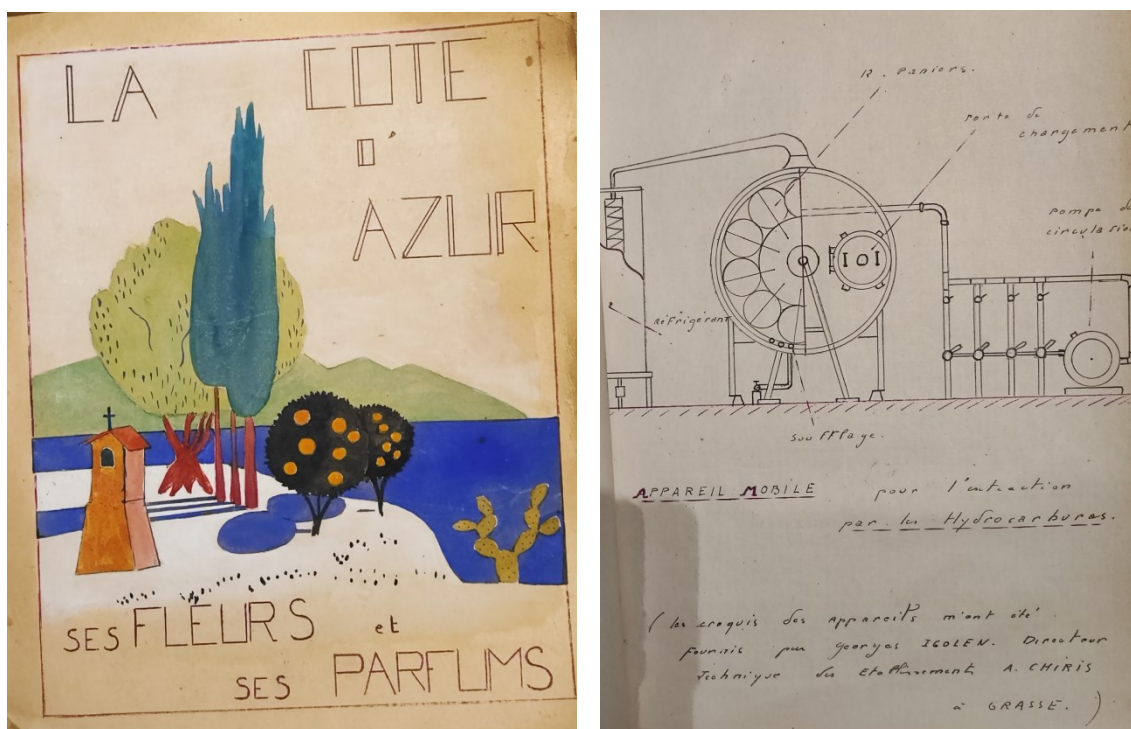 LA COTE
D'
AZUR
SES FLEURS et
SES PARFUMS
R. Paniers.
Porte de
chargement
Pompe de
circulation
Réfrigérant
soufflage.
APPAREIL MOBILE pour l'extraction
par les Hydrocarbures.
(les croquis des Appareils m'ont été
fournis par Georges IGOLEN. Directeur
Technique des Etablissements A. CHIRIS
à GRASSE.)